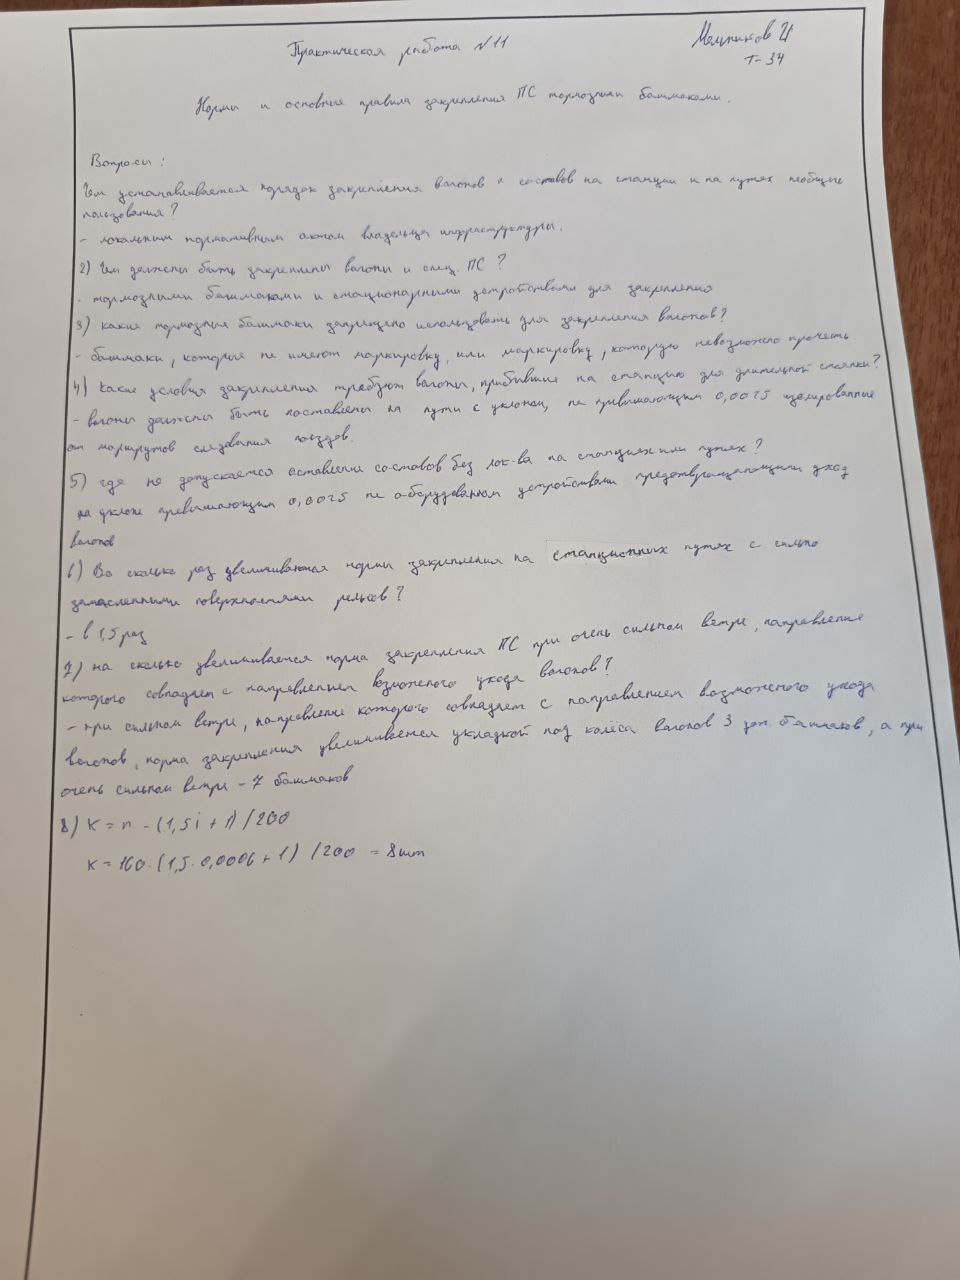 Практическая работа N 11
Мельников И
Т-34
Нормы и основные правила закрепления ПС тормозными башмаками.
Вопросы:
Чем устанавливается порядок закрепления вагонов и составов на станции и на путях необщего
пользования?
- локальным нормативным актом владельца инфраструктуры.
2) Чем должны быть закреплены вагоны и спец. ПС?
- тормозными башмаками и стационарными устройствами для закрепления
3) какие тормозные башмаки запрещено использовать для закрепления вагонов?
- башмаки, которые не имеют маркировку, или маркировку, которую невозможно прочесть
4) Какие условия закрепления требуют вагоны, прибывшие на станцию для длительной стоянки?
- вагоны должны быть поставлены на пути с уклоном, не превышающим 0,0025 изолированные
от маршрутов следования поездов.
5) где не допускается оставление составов без лок-ва на станциях или путях?
на уклоне превышающим 0,0025 не оборудованном устройствами предотвращающими уход
вагонов
6) Во сколько раз увеличиваются нормы закрепления на станционных путях с сильно
замасленными поверхностями рельсов?
- в 1,5 раз
7) на сколько увеличивается норма закрепления ПС при очень сильном ветре, направление
которого совпадает с направлением возможного ухода вагонов?
- при сильном ветре, направление которого совпадает с направлением возможного ухода
вагонов, норма закрепления увеличивается укладкой под колёса вагонов 3 доп. башмаков, а при
очень сильном ветре - 7 башмаков
8) K = n - (1,5i + 1) / 200
K = 160 · (1,5 · 0,0006 + 1) / 200 = 8шт